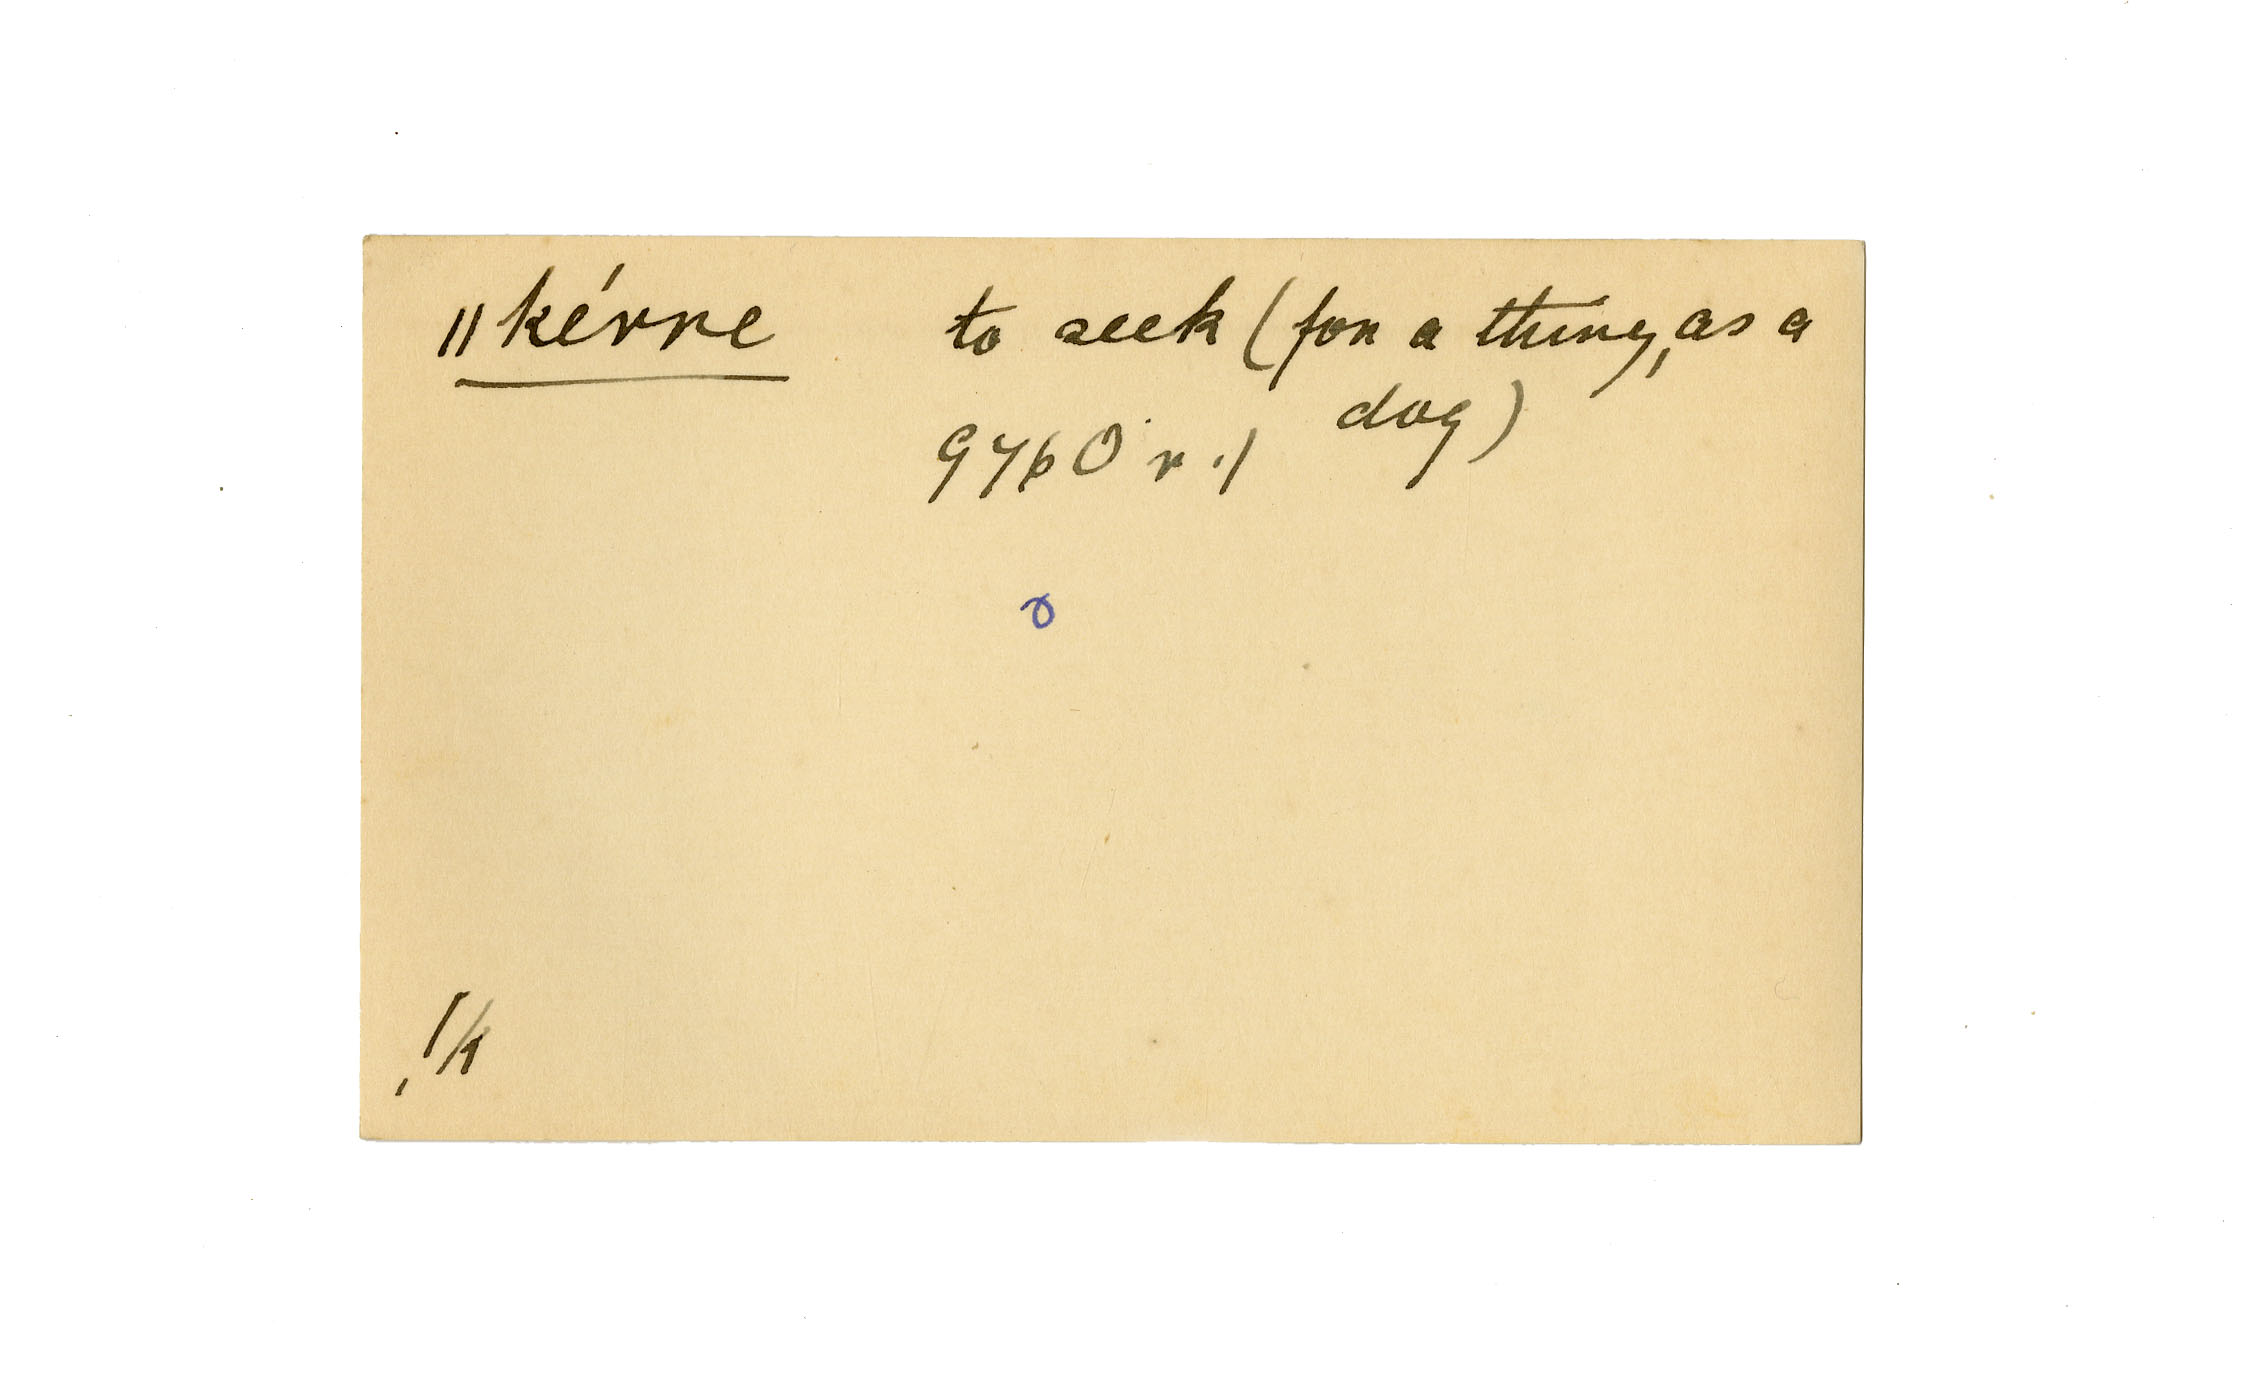 ǁkérre to seek (for a thing, as a
dog)
9760 r.